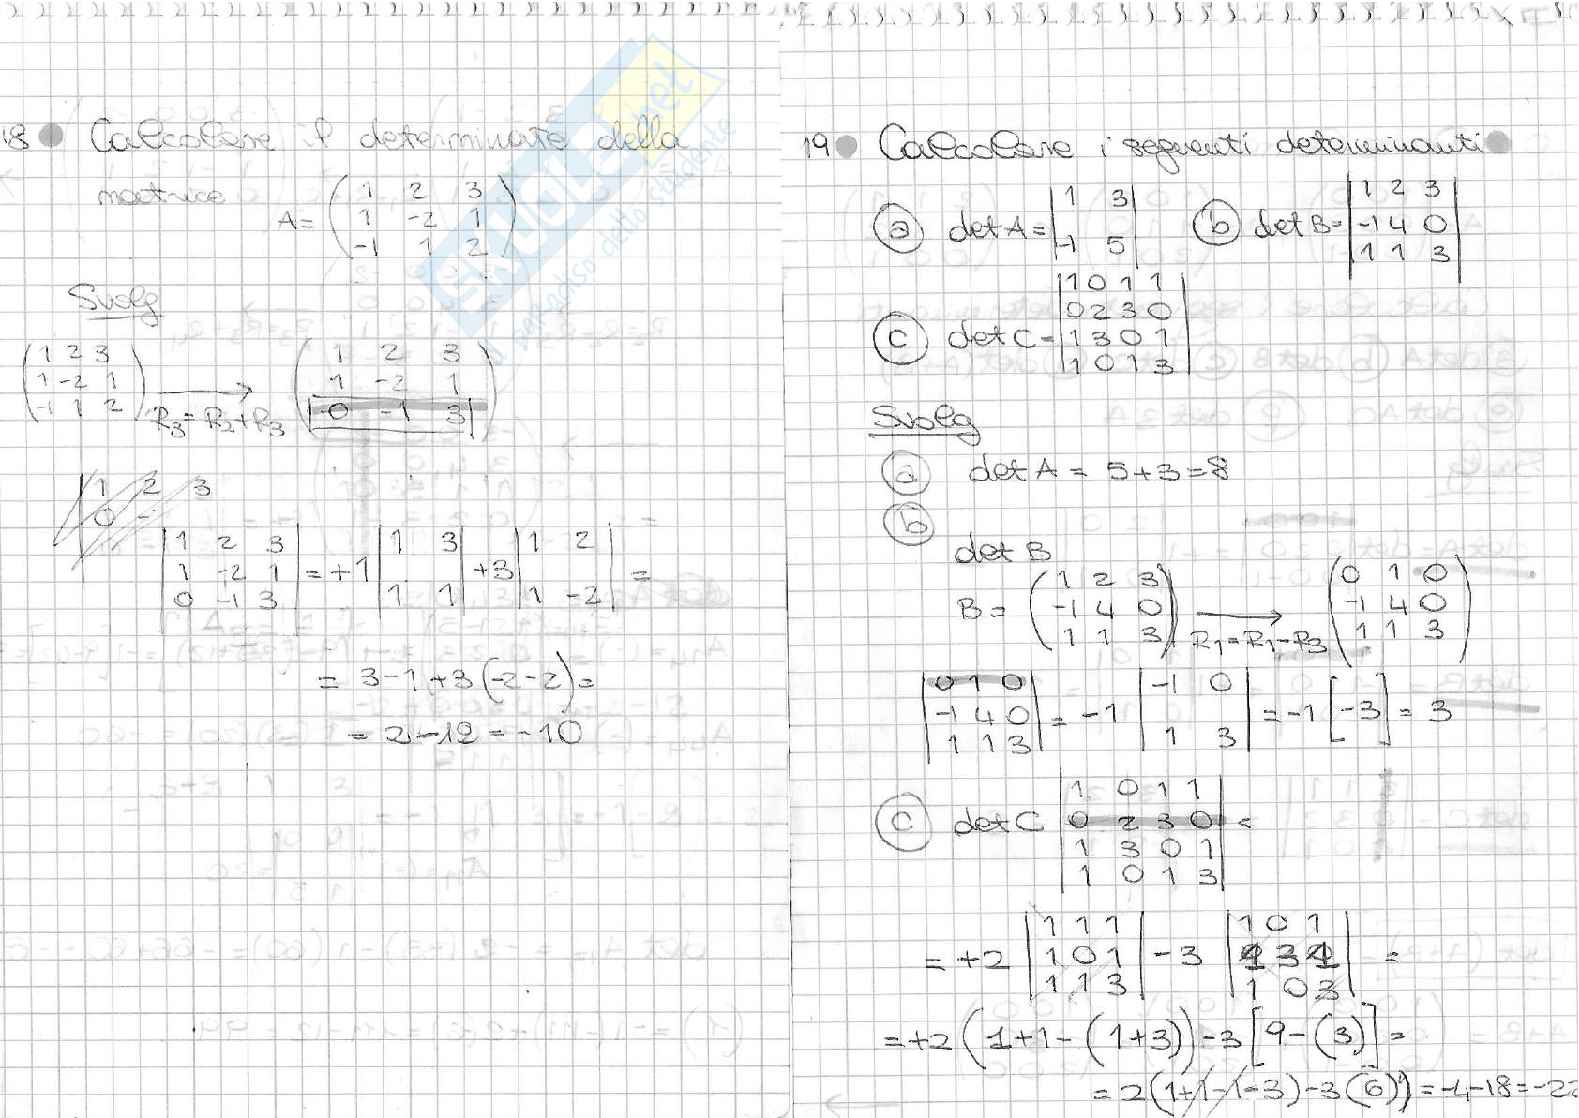 18 Calcolare il determinate della
matrice A= (1 2 3
1 -2 1
-1 1 2)
Svolg
(1 2 3
1 -2 1
-1 1 2) → R3=R2+R3 (1 2 3
1 -2 1
0 -1 3)
1 2 3
0 -
|1 2 3
1 -2 1
0 -1 3| = +1 |1 3
1 1| +3 |1 2
1 -2| =
= 3-1+3(-2-2)=
= 2-12=-10
SKUOLA.net
il paradiso dello studente
19 Calcolare i seguenti determinanti
a det A= |1 3
-1 5|
b det B= |1 2 3
-1 4 0
1 1 3|
c det C= |1 0 1 1
0 2 3 0
1 3 0 1
1 0 1 3|
Svolg
a det A = 5+3=8
b
det B
B= (1 2 3
-1 4 0
1 1 3) → R1=R1-R3 (0 1 0
-1 4 0
1 1 3)
|0 1 0
-1 4 0
1 1 3| = -1 |-1 0
1 3| = -1 [-3] = 3
c det C |1 0 1 1
0 2 3 0
1 3 0 1
1 0 1 3| =
= +2 |1 1 1
1 0 1
1 1 3| -3 |1 0 1
1 3 1
1 0 3| =
=+2(1+1-(1+3))-3[9-(3)]=
= 2(1+1-1-3)-3(6)=-4-18=-22